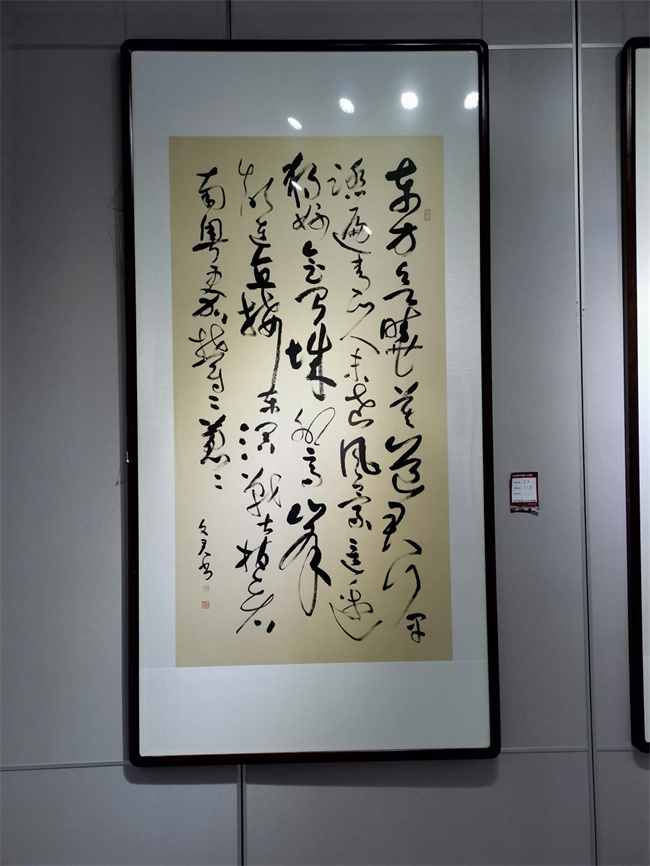 东方欲晓莫道君行早
踏遍青山人未老风景这边
独好会昌城外高峰
颠连直接东溟战士指看
南粤更加郁々葱々